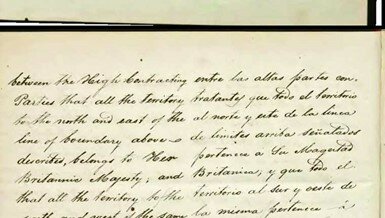 between the High Contracting
Parties that all the territory
to the north and east of the
line of boundary above
described, belongs to Her
Britannic Majesty; and
that all the territory to the
south and west of the same
entre las altas partes con-
tratantes que todo el territorio
al norte y este de la linea
de limites arriba señalados
pertenece a Su Magestad
Britanica; y que todo el
territorio al sur y oeste de
la misma pertenece á